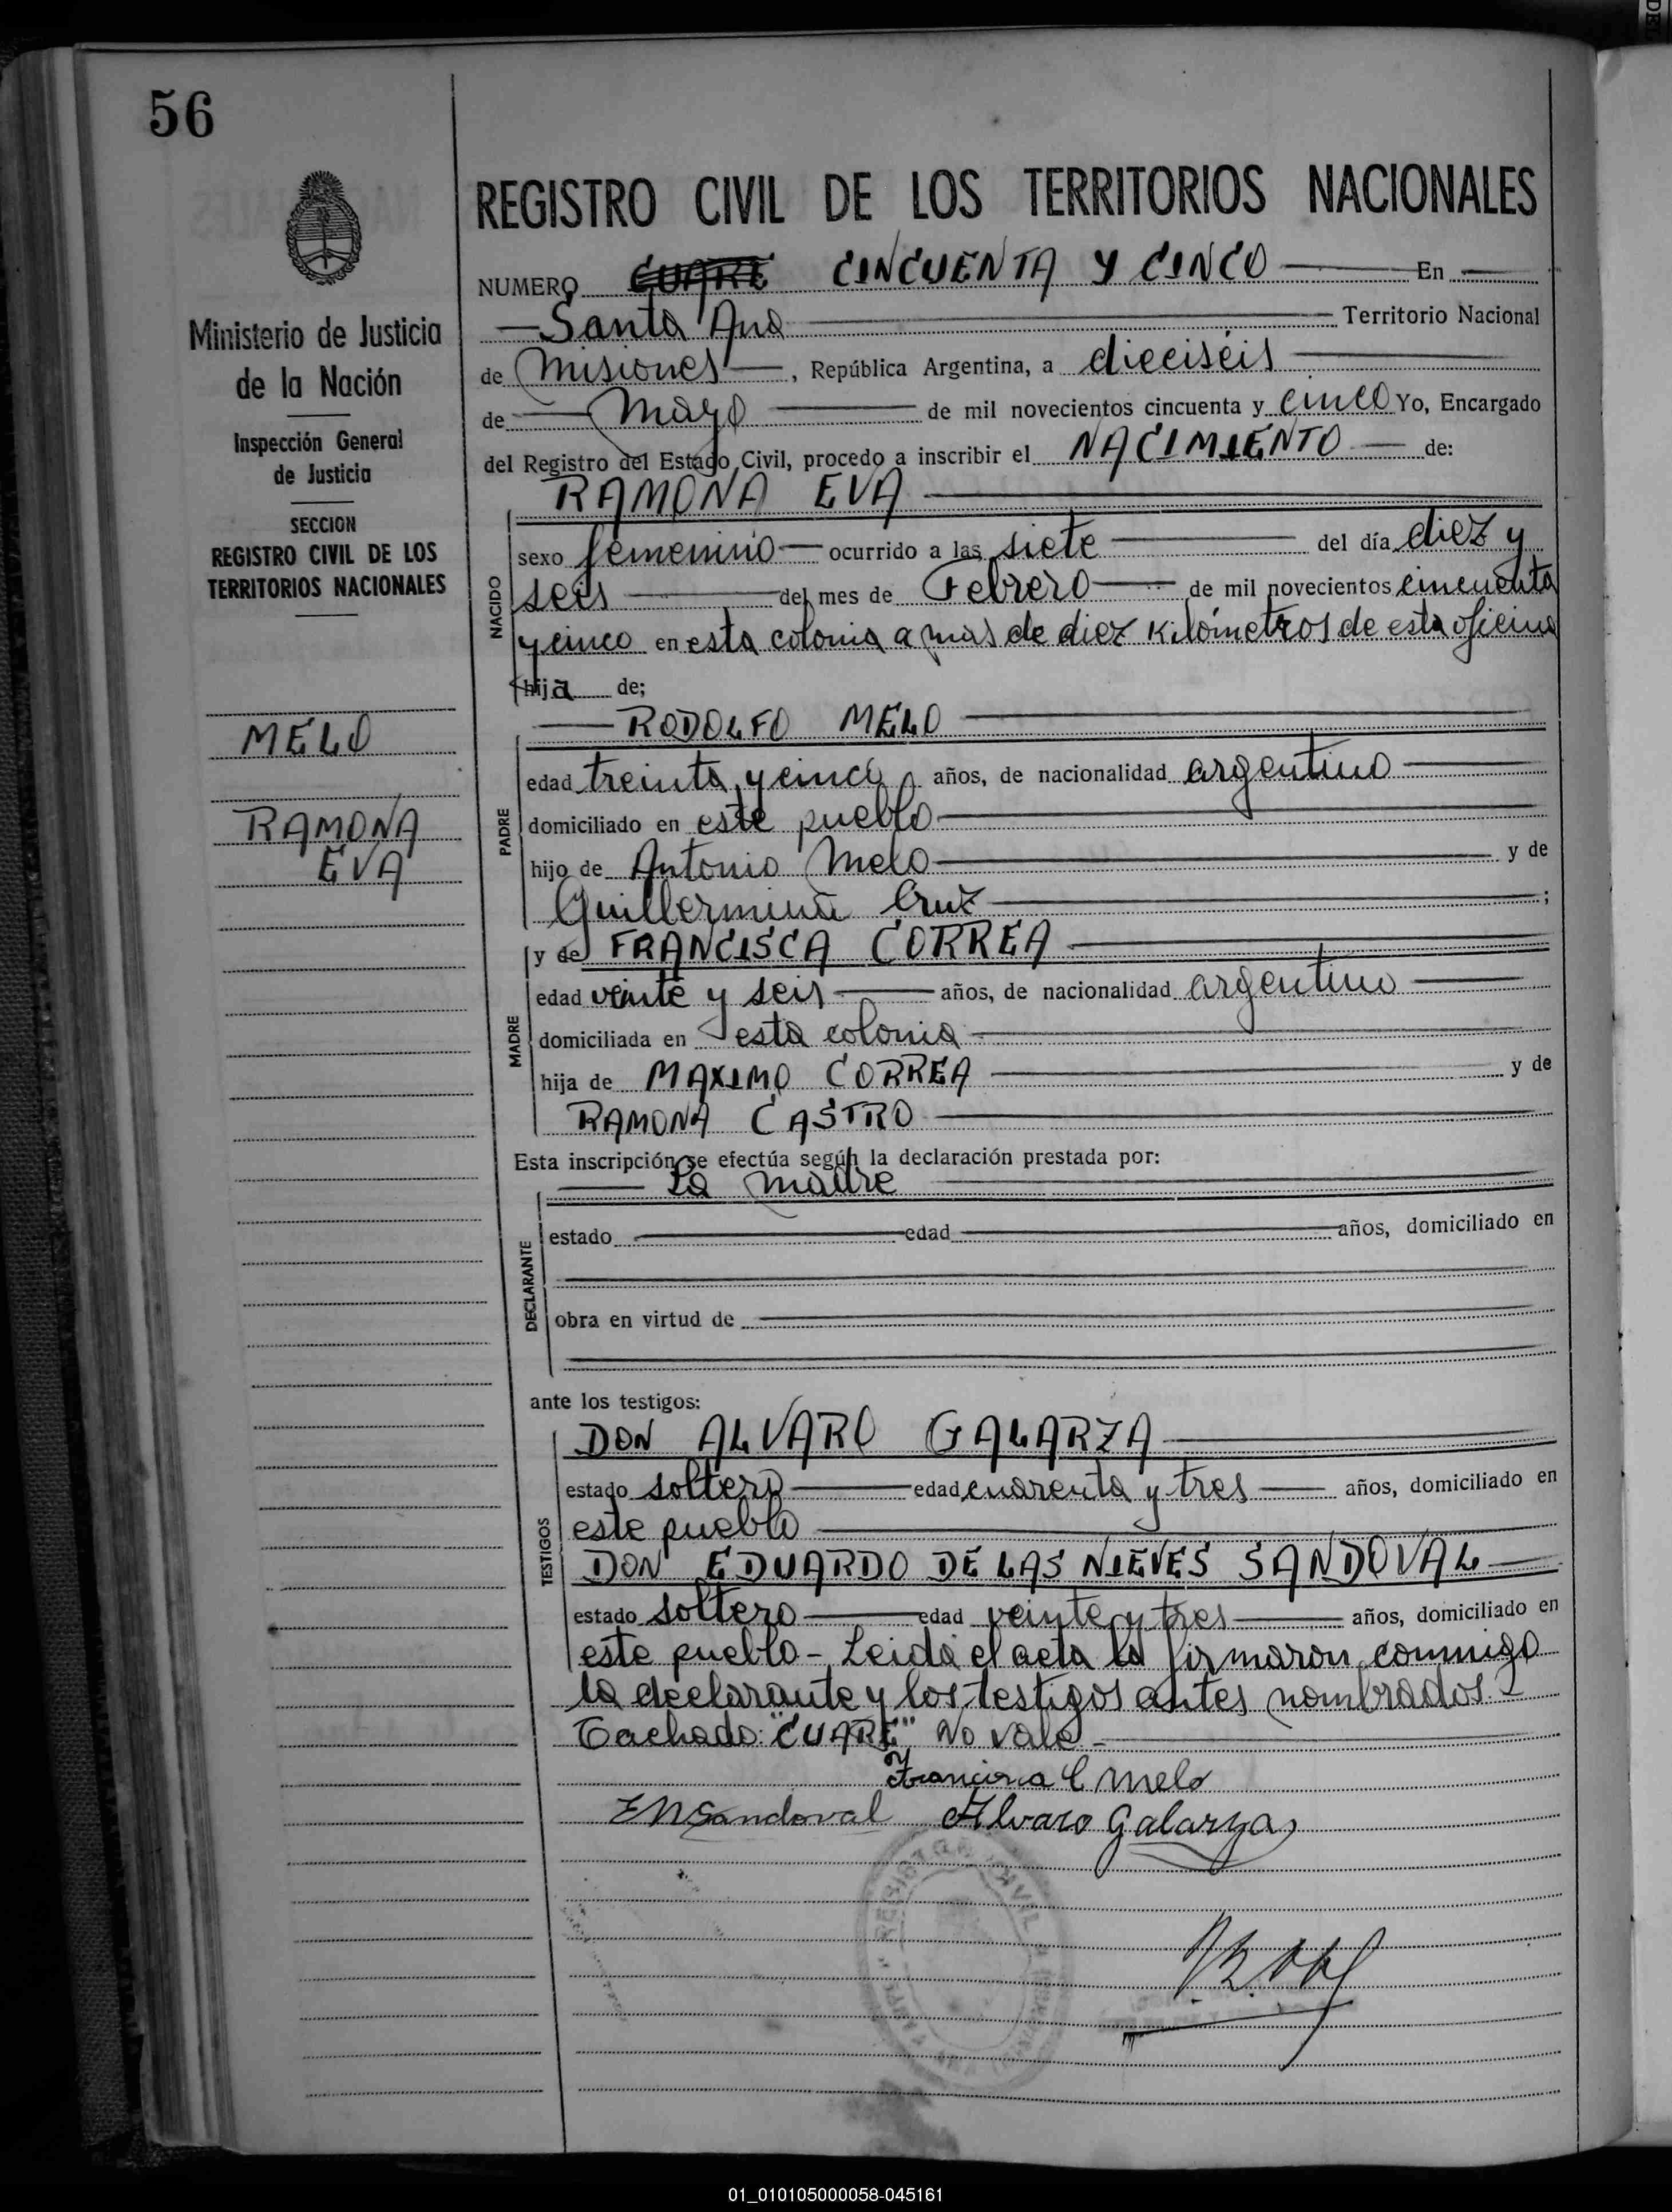 56
REGISTRO CIVIL DE LOS TERRITORIOS NACIONALES
Ministerio de Justicia
de la Nación
Inspección General
de Justicia
SECCION
REGISTRO CIVIL DE LOS
TERRITORIOS NACIONALES
MELO
RAMONA
EVA
NUMERO CUARE CINCUENTA Y CINCO En
Santa Ana Territorio Nacional
de Misiones, República Argentina, a dieciséis
de Mayo de mil novecientos cincuenta y cinco Yo, Encargado
del Registro del Estado Civil, procedo a inscribir el NACIMIENTO de:
RAMONA EVA
NACIDO
sexo femenino ocurrido a las siete del día diez y
seis del mes de Febrero de mil novecientos cincuenta
y cinco en esta colonia a mas de diez kilómetros de esta oficina
hija de;
RODOLFO MELO
PADRE
edad treinta y cinco años, de nacionalidad argentino
domiciliado en este pueblo
hijo de Antonio Melo y de
Guillermina Cruz ;
y de FRANCISCA CORREA
MADRE
edad veinte y seis años, de nacionalidad argentino
domiciliada en esta colonia
hija de MAXIMO CORREA y de
RAMONA CASTRO
Esta inscripción se efectúa según la declaración prestada por:
La madre
DECLARANTE
estado edad años, domiciliado en
obra en virtud de
ante los testigos:
DON ALVARO GALARZA
TESTIGOS
estado soltero edad cuarenta y tres años, domiciliado en
este pueblo
DON EDUARDO DE LAS NIEVES SANDOVAL
estado soltero edad veinte y tres años, domiciliado en
este pueblo - Leida el acta la firmaron conmigo
la declarante y los testigos antes nombrados.-
Tachado: "CUARE" No vale -
Francisca C Melo
ENSandoval Alvaro Galarza
REGISTRO CIVIL
01_010105000058-045161